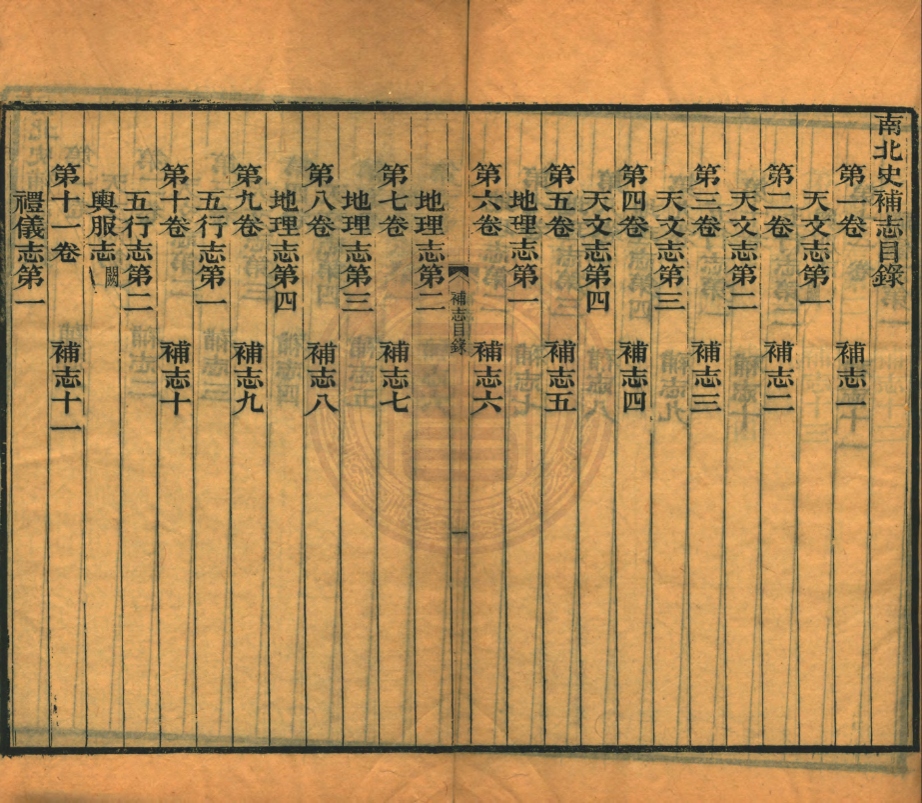 南北史補志目錄
第一卷 補志一
天文志第一
第二卷 補志二
天文志第二
第三卷 補志三
天文志第三
第四卷 補志四
天文志第四
第五卷 補志五
地理志第一
第六卷 補志六
補志目錄 一
地理志第二
第七卷 補志七
地理志第三
第八卷 補志八
地理志第四
第九卷 補志九
五行志第一
第十卷 補志十
五行志第二
輿服志闕
第十一卷 補志十一
禮儀志第一